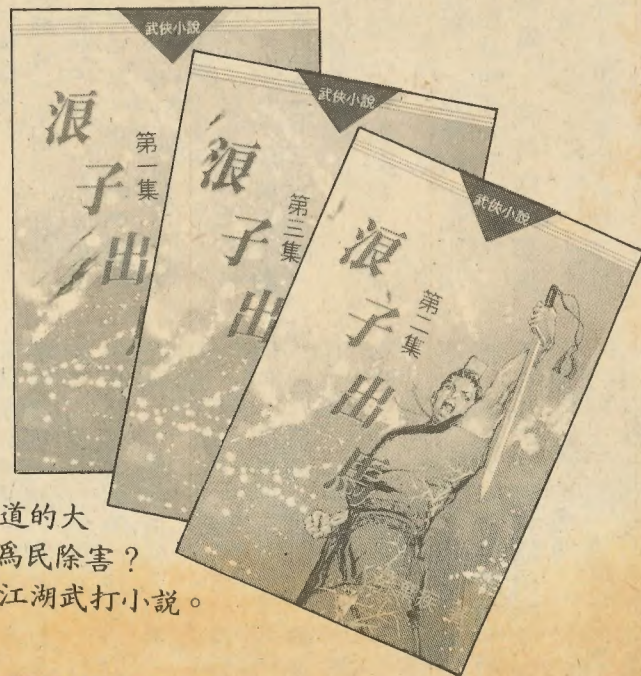 武俠小說
浪子出
第一集
武俠小說
浪子出
第三集
武俠小說
浪子出
第二集
道的大
爲民除害？
江湖武打小説。